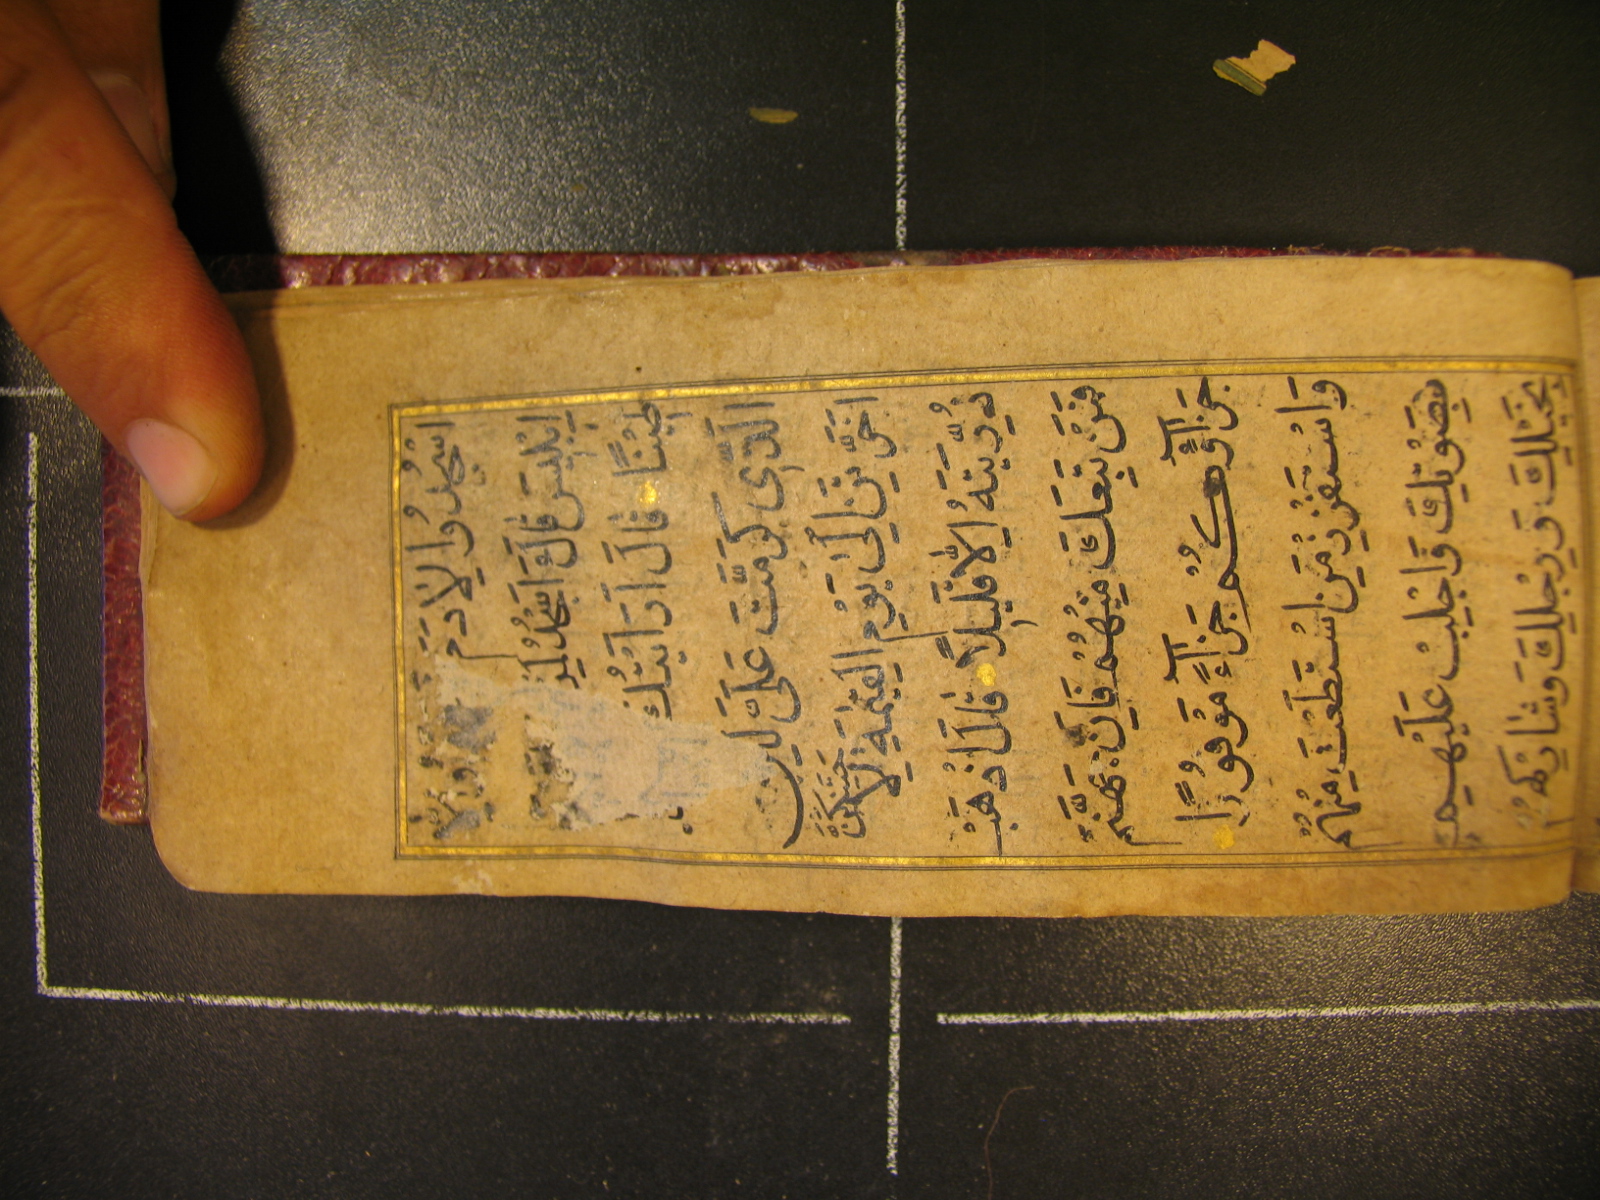 اسْجُدُوا لِاٰدَمَ
اِبْلِيسَ قَالَ ءَاَسْجُدُ لِمَنْ
طِينًا قَالَ اَرَاَيْتَكَ
الَّذِى كَرَّمْتَ عَلَىَّ لَئِنْ
اَخَّرْتَنِ اِلٰى يَوْمِ الْقِيٰمَةِ لَاَحْتَنِكَنَّ
ذُرِّيَّتَهُ اِلَّا قَلِيلًا قَالَ اذْهَبْ
فَمَنْ تَبِعَكَ مِنْهُمْ فَاِنَّ جَهَنَّمَ
جَزَآؤُكُمْ جَزَآءً مَوْفُورًا
وَاسْتَفْزِزْ مَنِ اسْتَطَعْتَ مِنْهُمْ
بِصَوْتِكَ وَاَجْلِبْ عَلَيْهِمْ
بِخَيْلِكَ وَرَجِلِكَ وَشَارِكْهُمْ